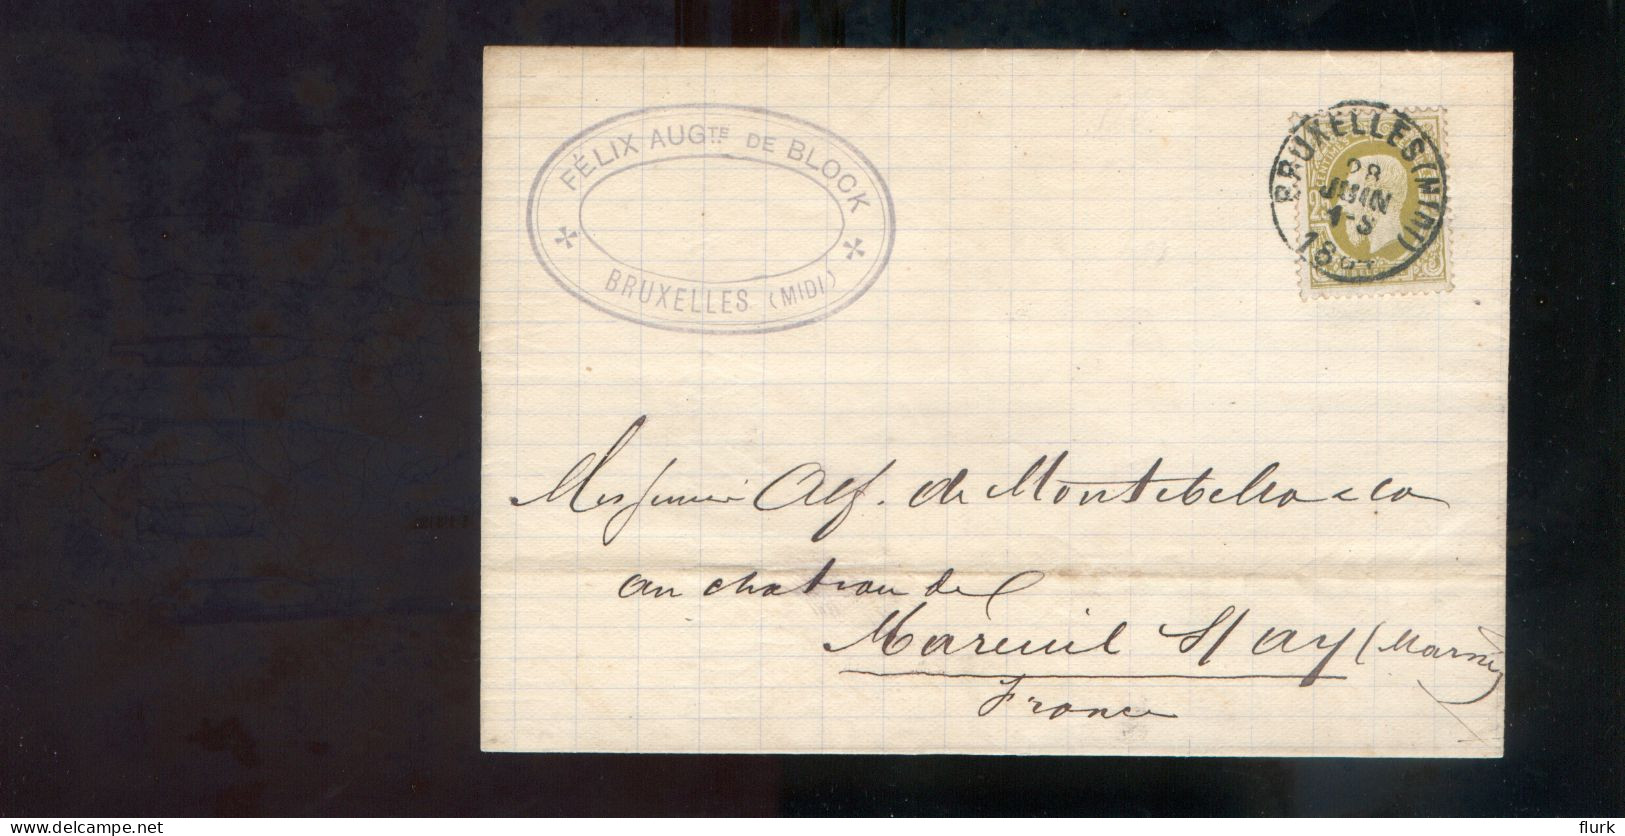 FÉLIX AUGTE DE BLOCK
BRUXELLES (MIDI)
BRUXELLES (MIDI)
28
JUIN
4-S
25 CENTIMES
Messieurs Alf. de Montebello & Co
au chateau de
Mareuil S/ ay (Marne)
France
delcampe.net
flurk